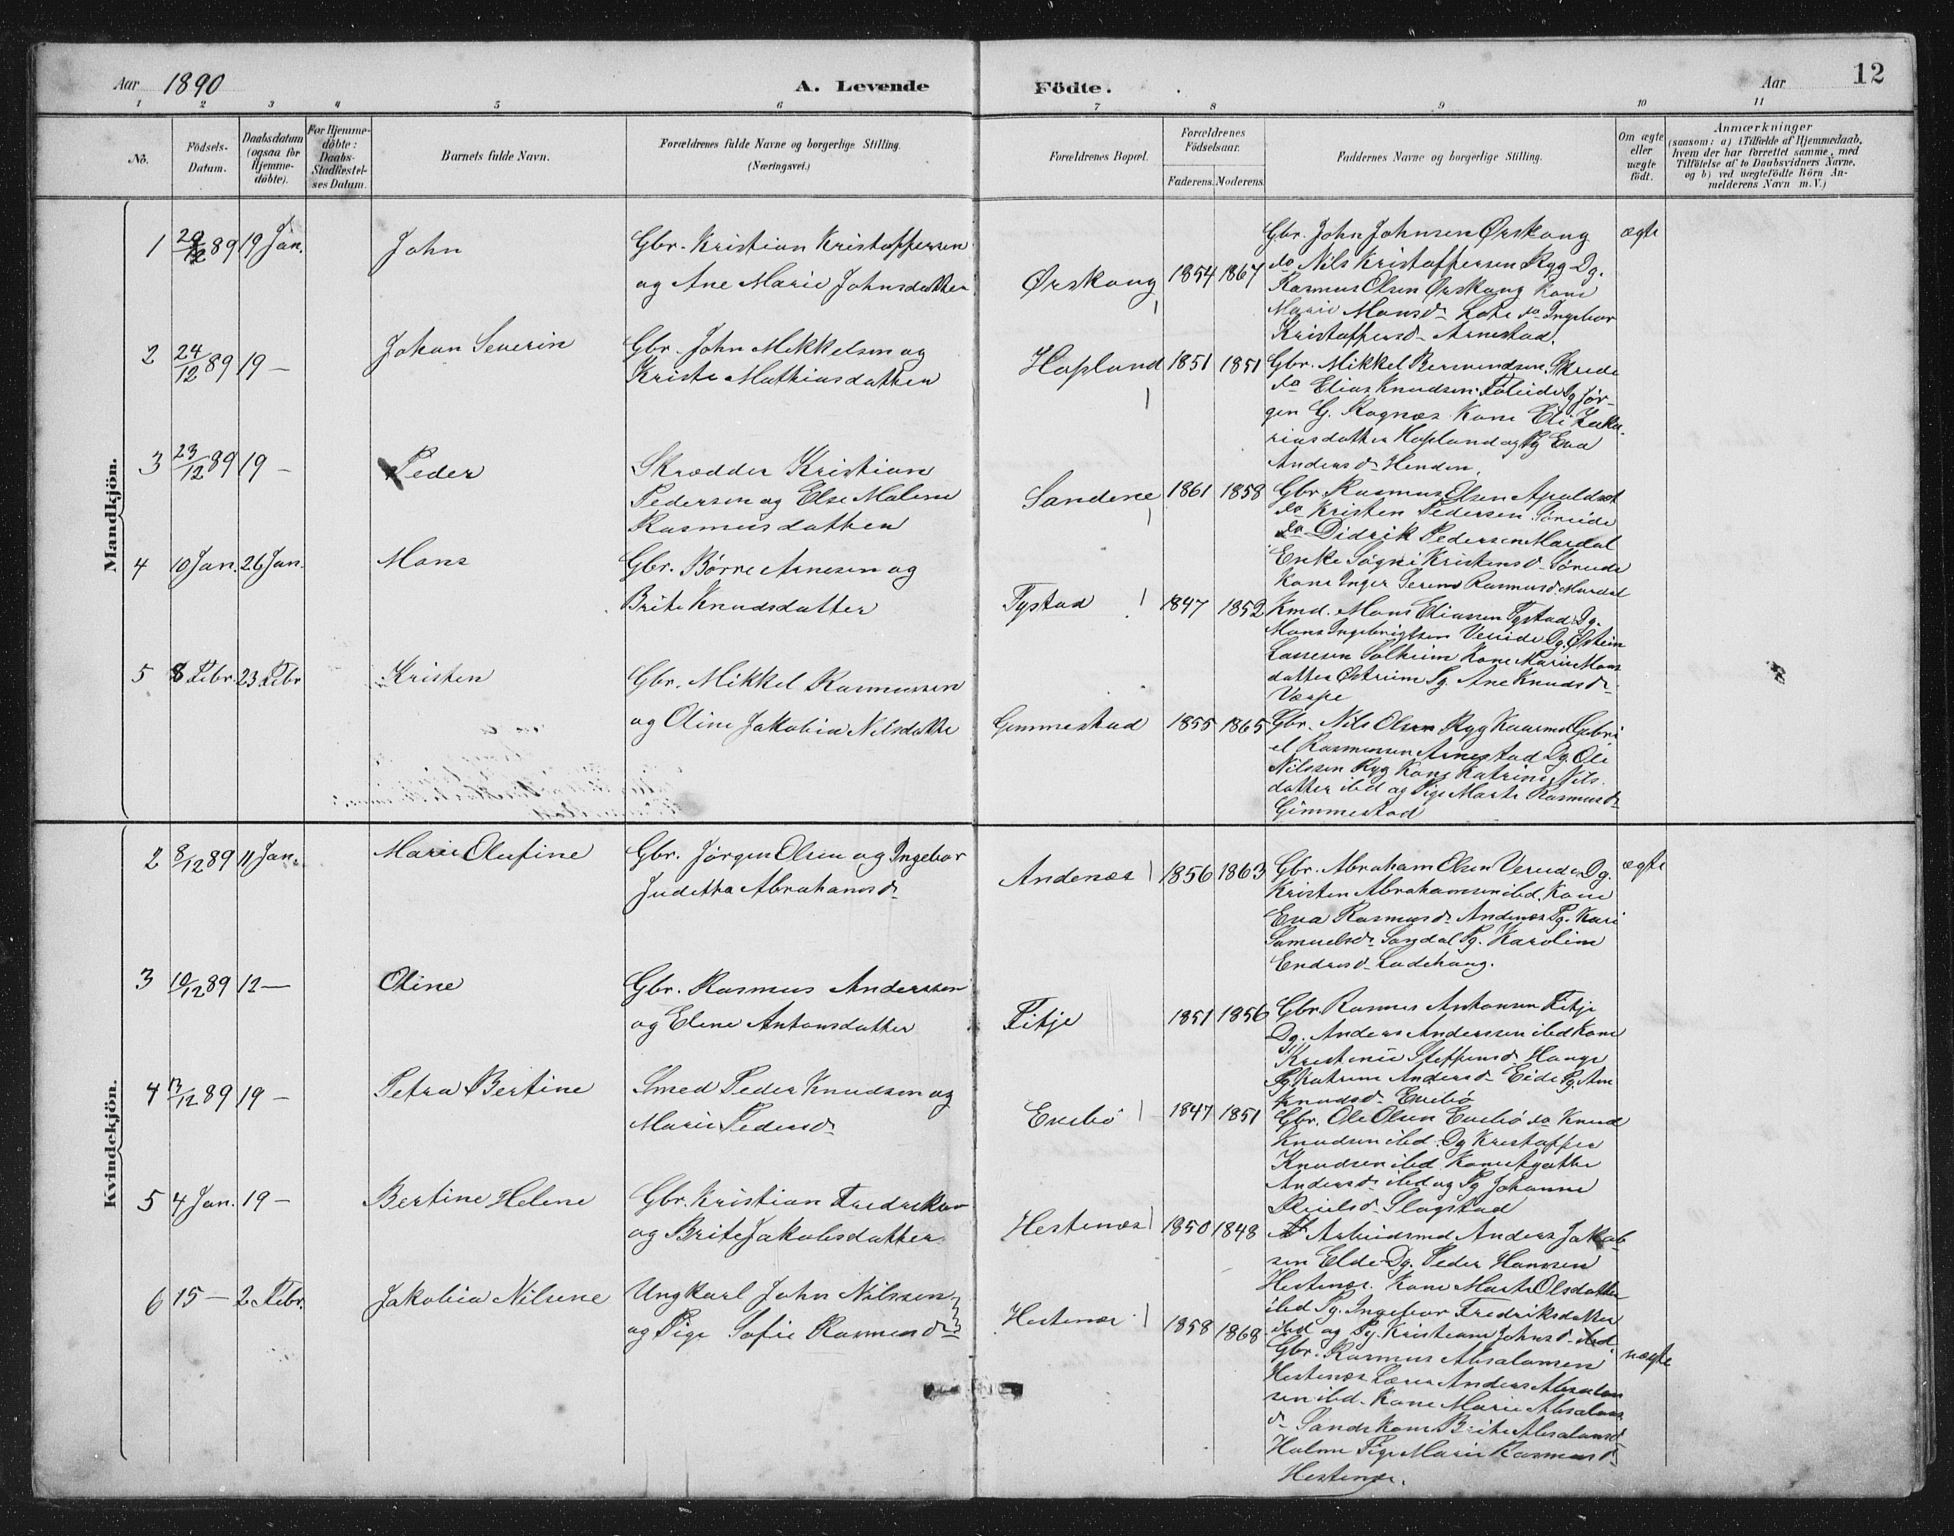 Aar 1890
A. Levende Födte.
Aar
12
1 2 3 4 5 6 7 8 9 10 11
No.
Födsels-Datum.
Daabsdatum (ogsaa for Hjemme-döbte).
For Hjemme-döbte: Daabs-Stadfæstel-ses Datum.
Barnets fulde Navn.
Forældrenes fulde Navne og borgerlige Stilling.
(Næringsvei.)
Forældrenes Bopæl.
Forældrenes Födselsaar.
Faderens. Moderens.
Faddernes Navne og borgerlige Stilling.
Om ægte eller uægte födt.
Anmærkninger
(saasom: a) i Tilfælde af Hjemmedaab, hvem der har forrettet samme, med Tilföielse af to Daabsvidners Navne, og b) ved uægtefödte Börn Anmelderens Navn m. V.)
Mandkjön.
1 29/12 89 19 Jan. John
Gbr. Kristian Kristoffersen
og Ane Marie Johnsdatter
Ørskoug 1854 1867
Gbr. John Johnsen Ørskoug
do Nils Kristoffersen Ryg Dg.
Rasmus Olsen Ørskoug Kone
Marie Monsd. Lote do Ingebor
Kristoffersd. Arnestad.
ægte
2 24/12 89 19 – Johan Severin
Gbr. John Mikkelsen og
Kriste Mathiasdatter
Hopland 1851 1851
Gbr. Mikkel Skrede
do Elias Knudsen Dg Jør-
gen G. Rognæs Kone Eli Zaka-
riasdatter Hopland og Pg Eva
Andersd. Henden.
3 23/12 89 19 – Peder
Skrædder Kristian
Pedersen og Else Malene
Rasmusdatter
Sandene 1861 1858
Gbr Rasmus Olsen Apaldset
do Kristen Pedersen Søreide
do Didrik Pedersen Mardal
Enke Søgni Kristensd. Søreide
Kone Inger Rasmusd. Mardal
4 10 Jan. 26 Jan. Mons
Gbr. Børre Arnesen og
Brite Knudsdatter
Tystad 1847 1852
Kmd. Mons Eliassen Tystad Dg.
Mons Ingebrigtsen Vereide Dg. Østein
Lassesen Solheim Kone Marie Mons
datter Østreim Pg. Ane Knudsd.
5 8 Febr. 23 Febr Kristen
Gbr. Mikkel Rasmussen
og Oline Jakobia Nilsdatter
Gimmestad 1855 1865
Gbr. Nils Olsen Ryg Gabri
el Rasmussen Arnestad Dg Ole
Nilssen Ryg Kone Katrine Nils
datter ibd og Pige Marte Rasmusd.
Gimmestad
Kvindekjön.
2 8/12 89 11 Jan. Marie Olufine
Gbr. Jørgen Olsen og Ingebor
Juditta Abrahamsd.
Andenæs 1856 1863
Gbr. Abraham Olsen Vereide Dg.
Kristen Abrahamsen ibd. Kone
Eva Rasmusd. Andenæs Pg. Kari
Samuelsd. Sandal Pg. Karoline
Endresd. Ladehaug.
ægte
3 10/12 89 12 – Oline
Gbr. Rasmus Anderssen
og Elene Antonsdatter
Fitje 1851 1856
Gbr Rasmus Antonsen Fitje
Dg. Anders Anderssen ibd Kone
Kristense Steffensd. Hauge
Pg Katrine Andersd. Eide Pg. Ane
Knudsd. Evebø
4 13/12 89 19 – Petra Bertine
Smed Peder Knudsen og
Marie Pedersd.
Evebø 1847 1851
Gbr. Ole Olsen Evebø do Knud
Knudsen ibd. Dg Kristoffer
Knudsen ibd Kone Agatha
Andersd. ibd og Pg Johanne
Slagstad
5 4 Jan. 19 – Bertine Helene
Gbr. Kristian Fredriksen
og Brite Jakobsdatter
Hestenæs 1850 1848
Arbeidsmd Anders Jakob-
sen Elde Dg. Peder Hanssen
Hestenæs. Kone Marte Olsdatter
ibd Pg. Ingebor Fredriksdatter
ibd og Pg. Kristiane Johnsd. ibd
6 15 – 2 Febr. Jakobia Nilsine
Ungkarl John Nilssen
og Pige Sofie Rasmusd.
Hestenæs 1858 1868
Gbr. Rasmus Absalonsen
Hestenæs Lærer Anders Absalon
sen ibd. Kone Marie Absalons
d. Sande Kone Brite Absalonsd
Holme Pige Marie Rasmusd.
Hestenæs.
uægte